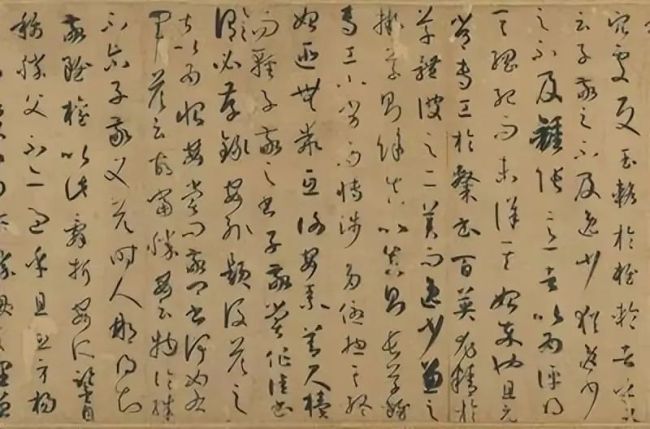 穴處反玉輅於椎輪者乎又
云子敬之不及逸少猶逸少
之不及鍾張意者以為評得
其綱紀而未詳其始卒也且元
常專工於隸書百英尤精於
草體彼之二美而逸少兼之
擬草則餘真比真則長草雖
專工小劣而博涉多優總其終
始匪無乖互謝安素善尺牘
而輕子敬之書子敬嘗作佳書
與之謂必存錄安輒題後答之
甚以為恨安嘗問敬卿書何如右
軍答云故當勝安云物論殊
不爾子敬又答時人那得知
敬雖權以此辭折安所鑒自
稱勝父不亦過乎且立身揚